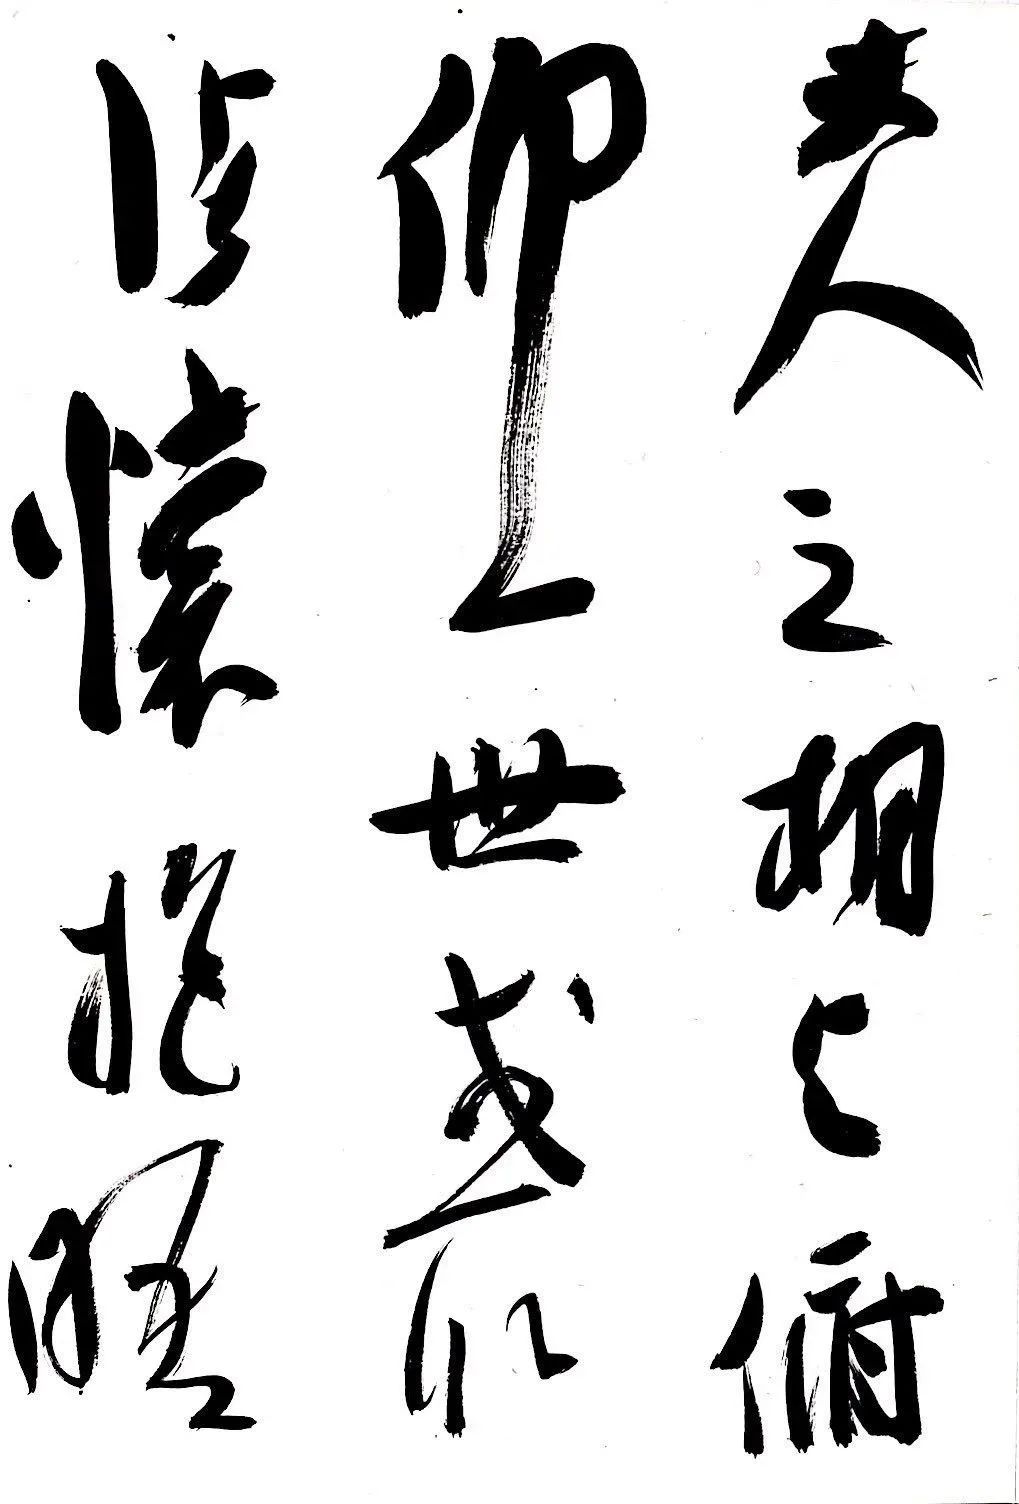 夫人之相与俯
仰一世或取
諸懷抱晤